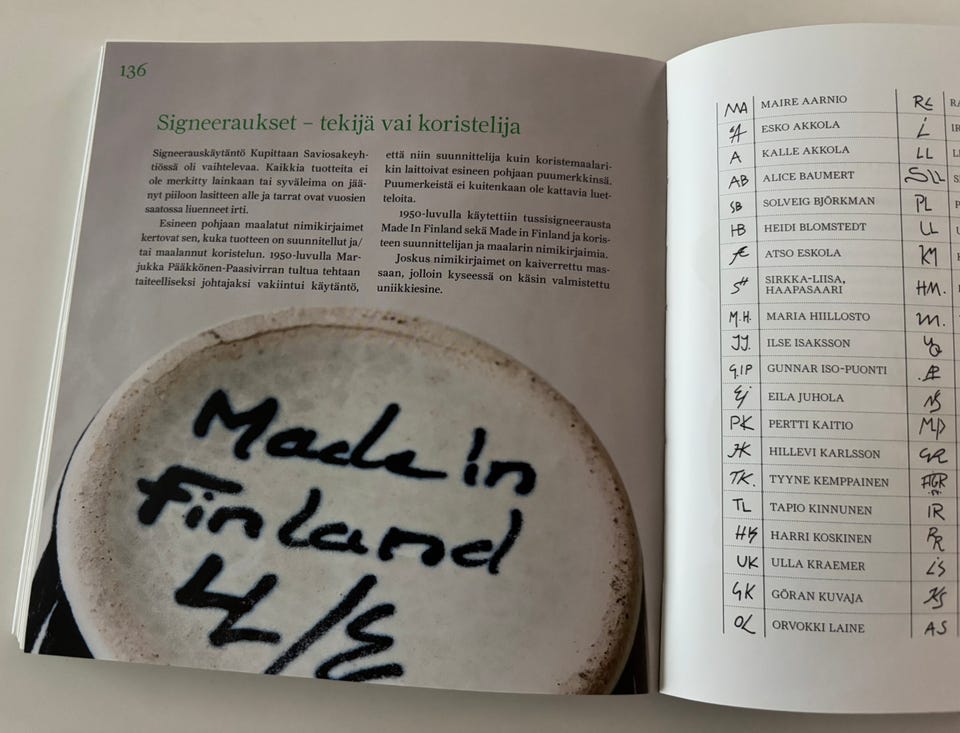 136
Signeeraukset – tekijä vai koristelija
Signeerauskäytäntö Kupittaan Saviosakeyh-
tiössä oli vaihtelevaa. Kaikkia tuotteita ei
ole merkitty lainkaan tai syväleima on jää-
nyt piiloon lasitteen alle ja tarrat ovat vuosien
saatossa liuenneet irti.
Esineen pohjaan maalatut nimikirjaimet
kertovat sen, kuka tuotteen on suunnitellut ja/
tai maalannut koristelun. 1950-luvulla Mar-
jukka Pääkkönen-Paasivirran tultua tehtaan
taiteelliseksi johtajaksi vakiintui käytäntö,
että niin suunnittelija kuin koristemaalari-
kin laittoivat esineen pohjaan puumerkkinsä.
Puumerkeistä ei kuitenkaan ole kattavia luet-
teloita.
1950-luvulla käytettiin tussisigneerausta
Made In Finland sekä Made in Finland ja koris-
teen suunnittelijan ja maalarin nimikirjaimia.
Joskus nimikirjaimet on kaiverrettu mas-
saan, jolloin kyseessä on käsin valmistettu
uniikkiesine.
Made in
Finland
MA MAIRE AARNIO
ESKO AKKOLA
A KALLE AKKOLA LL
AB ALICE BAUMERT
SB SOLVEIG BJÖRKMAN PL
HB HEIDI BLOMSTEDT
ATSO ESKOLA KM
SH SIRKKA-LIISA,
HAAPASAARI HM.
M.H. MARIA HIILLOSTO m.
IJ. ILSE ISAKSSON
G.IP GUNNAR ISO-PUONTI
Ej EILA JUHOLA
PK PERTTI KAITIO MP
HK HILLEVI KARLSSON GR
TK. TYYNE KEMPPAINEN
TL TAPIO KINNUNEN IR
HK HARRI KOSKINEN
UK ULLA KRAEMER
GK GÖRAN KUVAJA
OL ORVOKKI LAINE AS